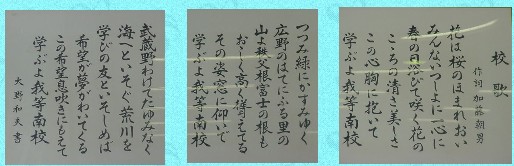 校歌
作詞 加藤朝男
花は桜のほまれおい
みんないっしょに一心に
春の日浴びて咲く花の
こころの清さ美しさ
この心胸に抱いて
学ぶよ我等南校
つつみ緑にかすみゆく
広野のはてにふる里の
山よ秩父根富士の根も
おーしく高く聳えてる
その姿窓に仰いで
学ぶよ我等南校
武蔵野わけてたゆみなく
海へといそぐ荒川を
学びの友といそしめば
希望が夢がわいてくる
この希望息吹きにもえて
学ぶよ我等南校
大野和夫書